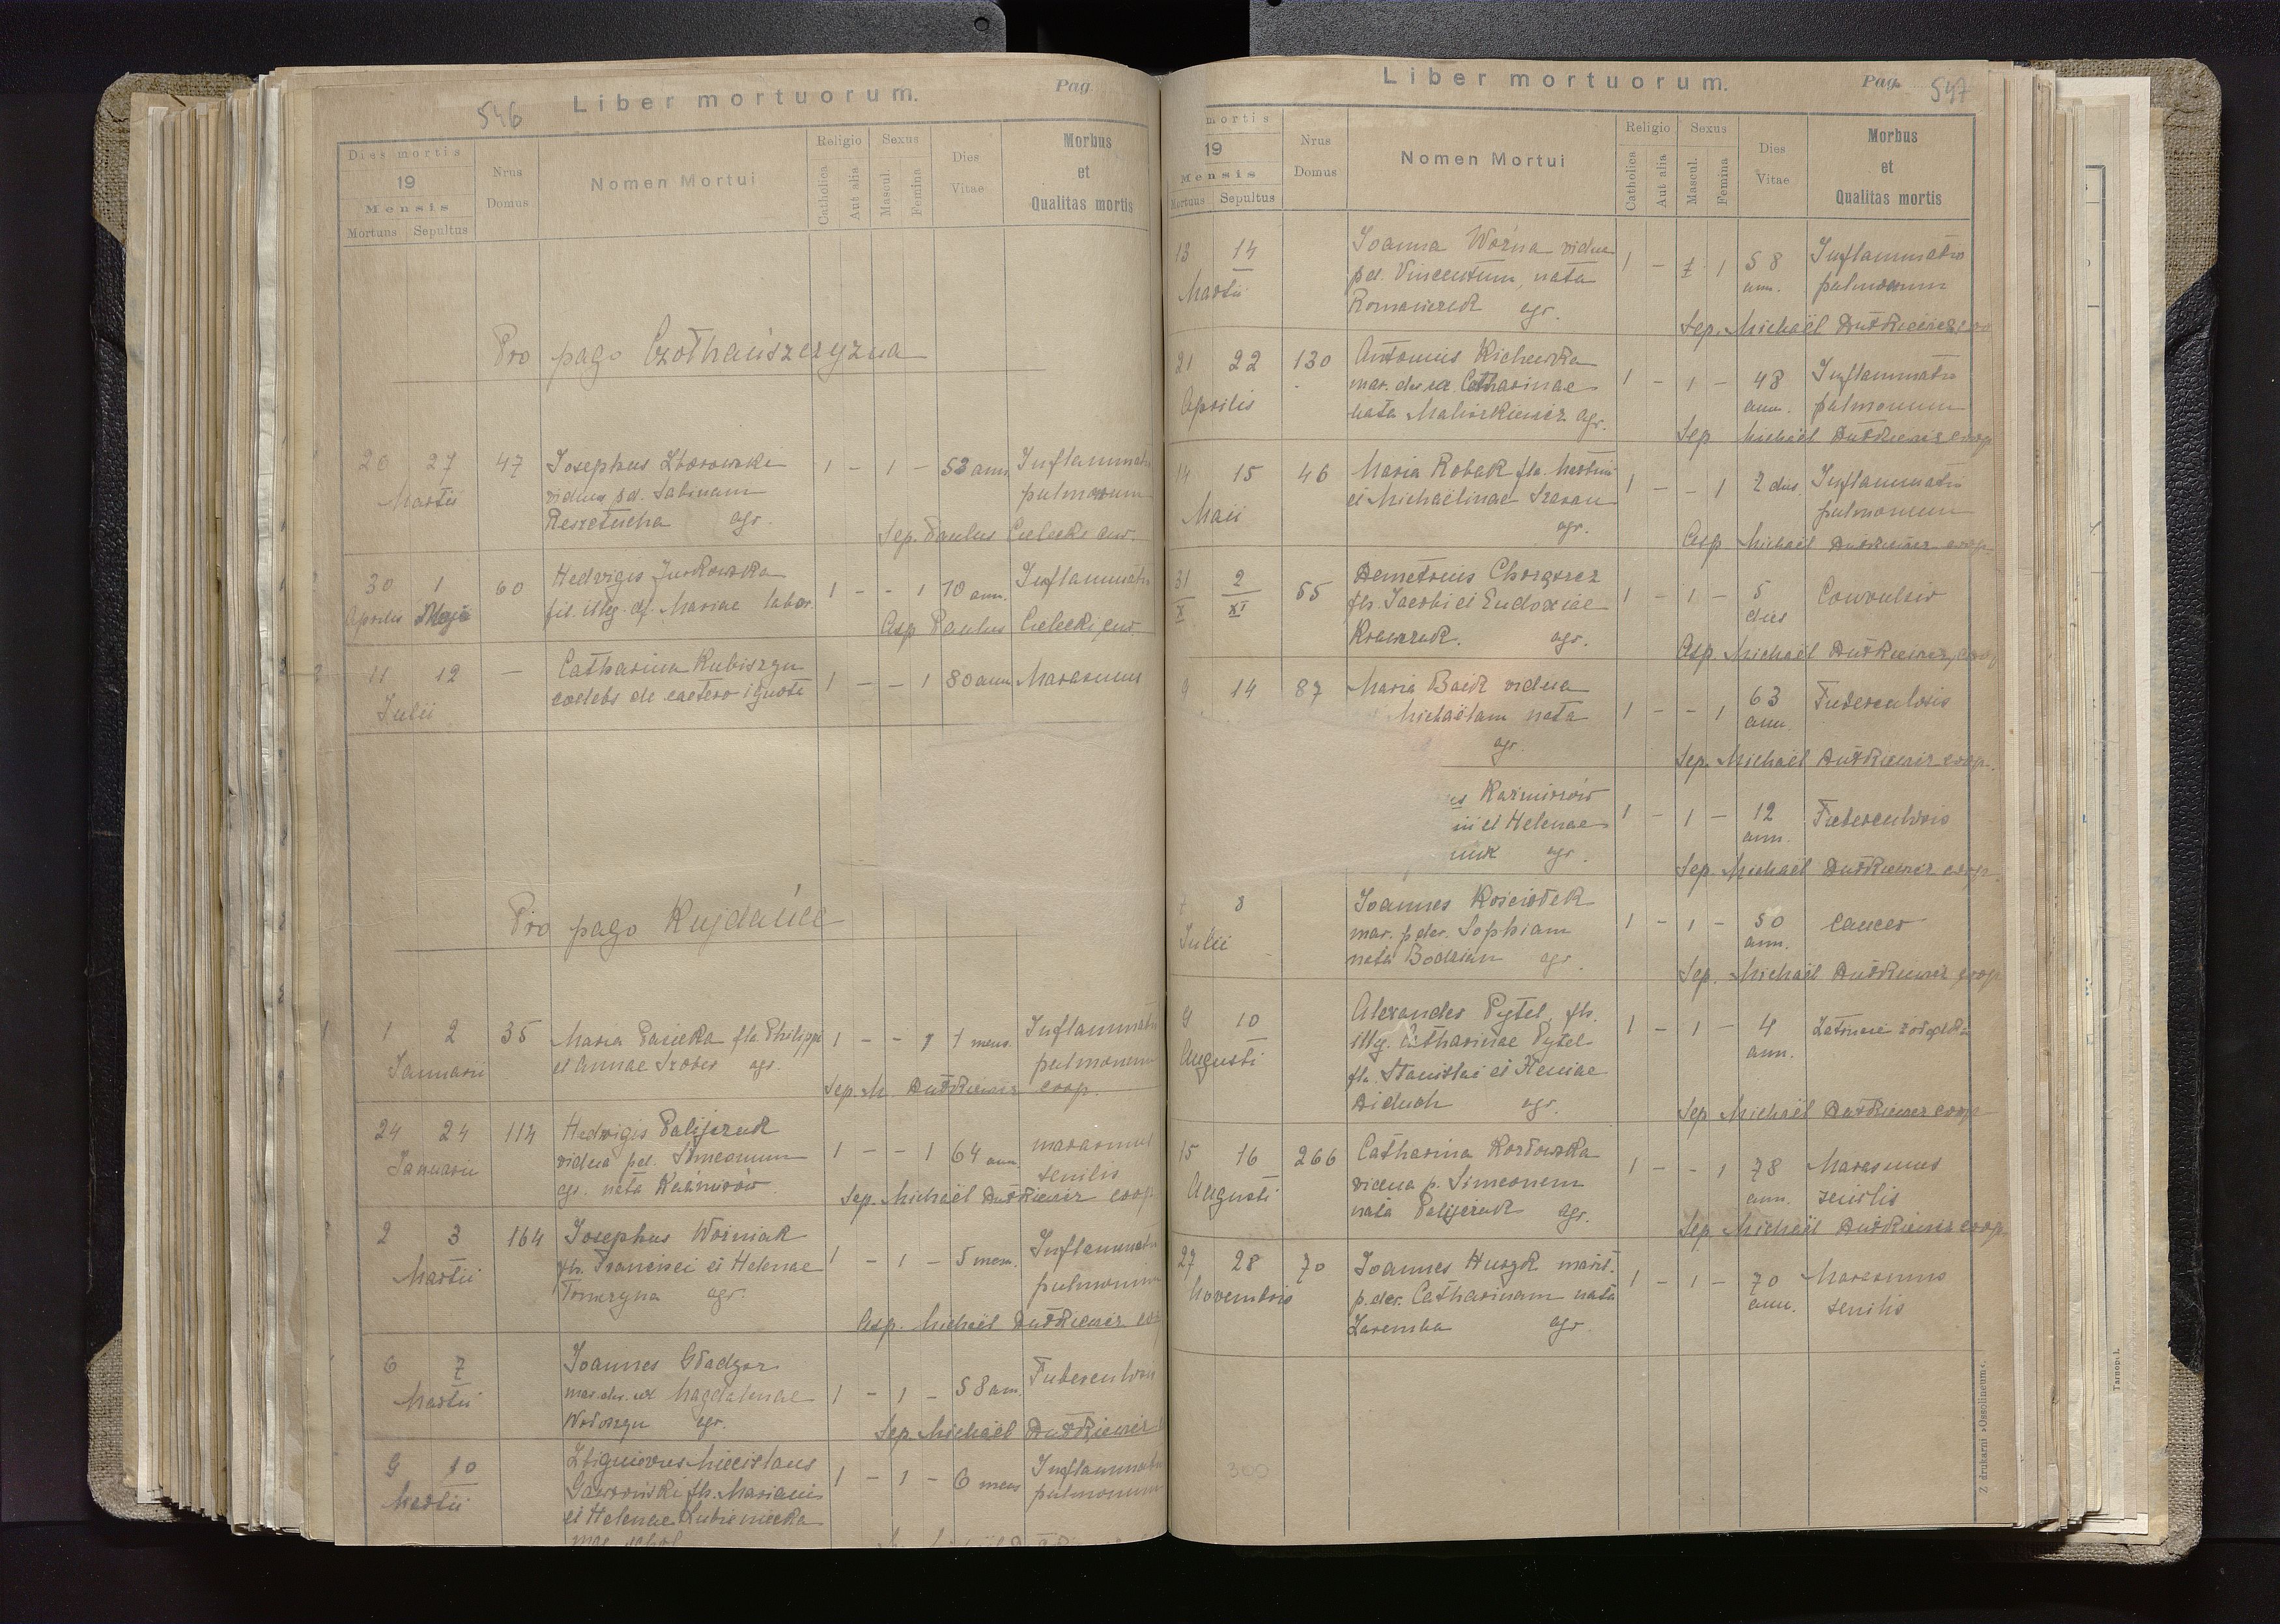 546 Liber mortuorum. Pag.
Dies mortis
19
Mensis
Mortuus Sepultus
Nrus
Domus
Nomen Mortui
Religio
Catholica
Aut alia
Sexus
Mascul.
Femina
Dies
Vitae
Morbus
et
Qualitas mortis
Pro pago
26 27 47 Josephus Zborowski 1 – 1 – 53 ann. Inflammatio
Martii viduus pd. Sabinam pulmonum
agr.
Sep. Paulus Cielecki cur.
30 1 60 Hedvigis Jurkowska 1 – – 1 10 ann. Inflammatio
Aprilis Maji fil. illeg. df. Mariae labor.
Asp Paulus Cielecki cur
11 12 — Catharina Kubiszyn 1 – – 1 80 ann Marasmus
Julii coelebs de caetero ignota
Pro pago Kujdańce
1 2 35 Maria Pasieka fla Philippi 1 – – 1 1 mens. Inflammatio
Januarii et Annae agr. pulmonum
Sep. M Dutkiewicz coop.
24 24 114 Hedwigis Palijczuk 1 – – 1 64 ann marasmus
Januarii vidua pd. Simeonum senilis
agr. nata Kaźmirów
Sep. Michaël Dutkiewicz coop
2 3 164 Josephus Woźniak 1 – 1 – 5 mens. Inflammatio
Martii fls. Francisci et Helenae pulmonum
Tomczyna agr.
Asp. Michaël Dutkiewicz coop
6 7 Joannes Gładysz 1 – 1 – 58 ann. Tuberculosis
Martii mar. der. ux Magdalenae
Wołoszyn agr.
Sep. Michaël Dutkiewicz
9 10 Zbigniewus Miecislaus 1 – 1 – 6 mens Inflammatio
Martii Gawroński fls. Mariani pulmonum
et Helenae Lubieniecka
Liber mortuorum. Pag. 547
mortis
19
Mensis
Mortuus Sepultus
Nrus
Domus
Nomen Mortui
Religio
Catholica
Aut alia
Sexus
Mascul.
Femina
Dies
Vitae
Morbus
et
Qualitas mortis
13 14 Joanna Woźna vidua 1 – 1 58 Inflammatio
Martii pd. Vincentum, nata ann. pulmonum
Romańczuk agr.
Sep. Michaël Dutkiewicz coop
21 22 130 Antonius 1 – 1 – 48 Inflammatio
Aprilis mar. der. ux. Catharinae ann. pulmonum
nata Malinkiewicz agr.
Sep Michaël Dutkiewicz coop
14 15 46 Maria Robak fla. Martini 1 – – 1 2 dies Inflammatio
Maii et Michaëlinae Szaran pulmonum
agr.
Asp Michaël Dutkiewicz coop.
31 2 55 Demetrius 1 – 1 – 5 Convulsio
X XI fls. Jacobi et Eudoxiae dies
Krawczuk. agr.
Asp. Michaël Dutkiewicz, coop
9 14 87 Maria Bach vidua 1 – – 1 63 Tuberculosis
Michaëlam nata ann
agr.
Sep. Michaël Dutkiewicz coop.
us Kaźmirów 1 – 1 – 12 Tuberculosis
ni et Helenae ann.
agr.
Sep. Michaël Dutkiewicz coop.
7 8 Joannes Kościołek 1 – 1 – 50 Cancer
Julii mar. p der. Sophiam ann.
nata Bodzian agr
Sep. Michaël Dutkiewicz coop
9 10 Alexander Pytel, fls. 1 – 1 – 4
Augusti illeg. Catharinae Pytel ann.
fla. Stanislai et Xeniae
Diduch agr.
Sep Michaël Dutkiewicz coop
15 16 266 Catharina Kozłowska 1 – – 1 78 Marasmus
Augusti vidua p. Simeonem ann. senilis
nata Palijczuk agr.
Sep Michaël Dutkiewicz coop
27 28 70 Joannes Huszk marit. 1 – 1 – 70 Marasmus
Novembris p. der. Catharinam nata ann. senilis
Zaremba agr
300
Z drukarni »Ossolineum«.